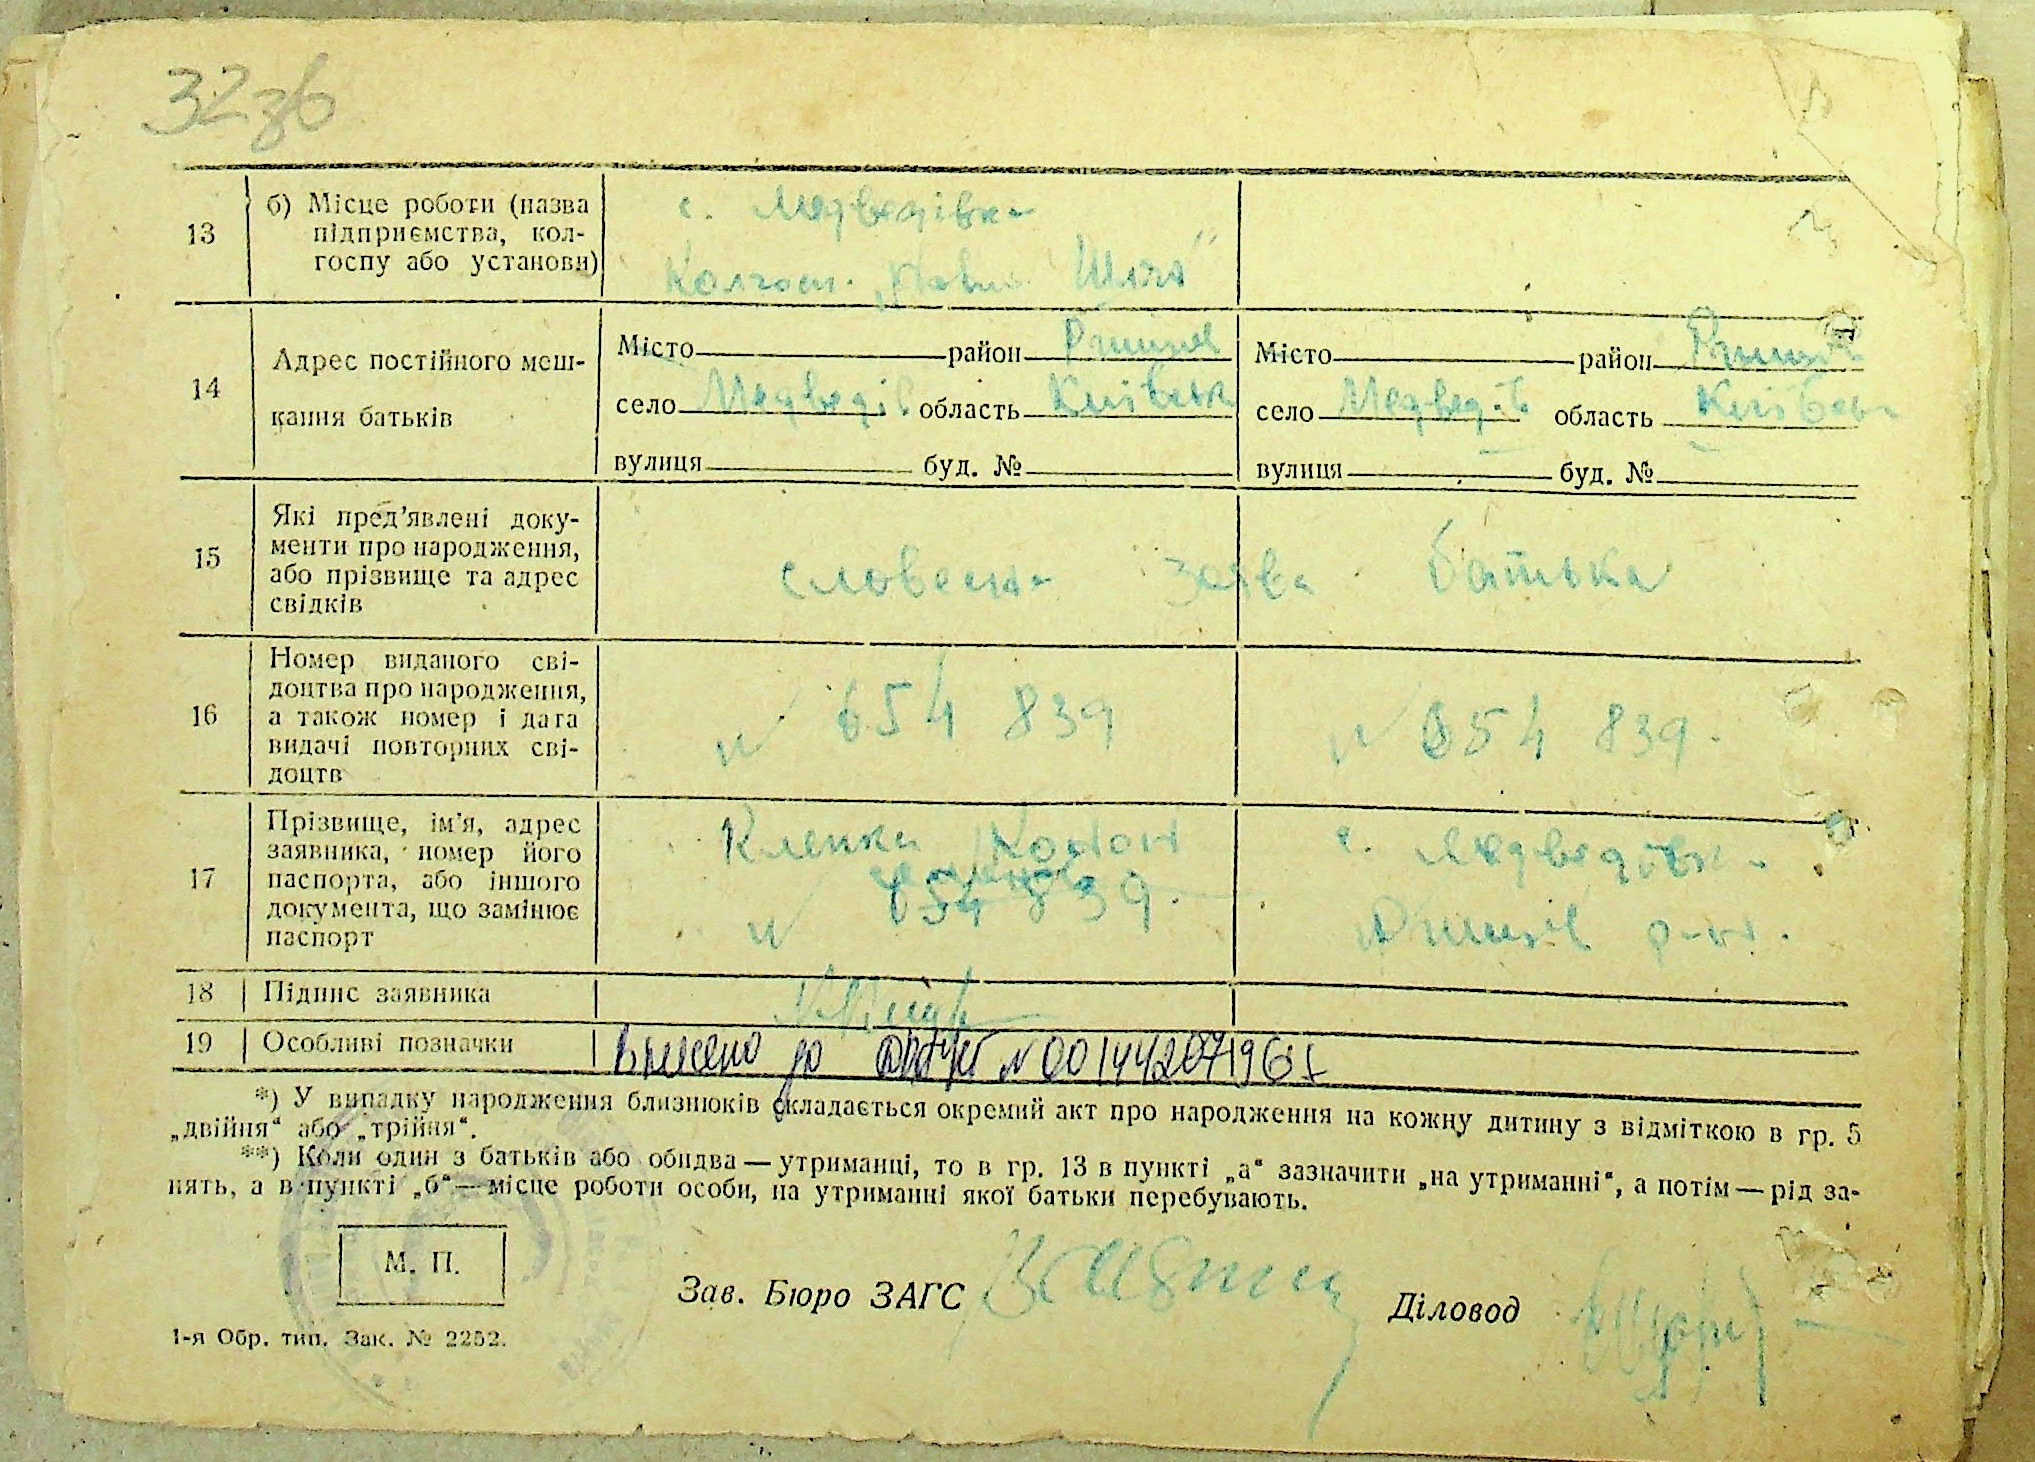 32зв
13
б) Місце роботи (назва
підприємства, кол-
госпу або установи)
с. Медведівка
Колгосп. „ Шлях“
14
Адрес постійного меш-
кання батьків
Місто район Ржищів
село Медведів область Київськ
вулиця буд. №
Місто район Ржищів
село Медведів область Київськ
вулиця буд. №
15
Які пред’явлені доку-
менти про народження,
або прізвище та адрес
свідків
словесна заява батька
16
Номер виданого сві-
доцтва про народження,
а також номер і дата
видачі повторних сві-
доцтв
№ 654 839
№ 654 839.
17
Прізвище, ім’я, адрес
заявника, номер його
паспорта, або іншого
документа, що замінює
паспорт
Кленка
№ 654 839.
с. Медведівка
Ржищів р-н.
18
Підпис заявника
19
Особливі позначки
Внесено до №00144287196
*) У випадку народження близнюків складається окремий акт про народження на кожну дитину з відміткою в гр. 5
„двійня“ або „трійня“.
**) Коли один з батьків або обидва—утриманці, то в гр. 13 в пункті „а“ зазначити „на утриманні“, а потім—рід за-
нять, а в пункті „б“—місце роботи особи, на утриманні якої батьки перебувають.
М. П.
Зав. Бюро ЗАГС
Діловод
1-я Обр. тип. Зак. № 2252.